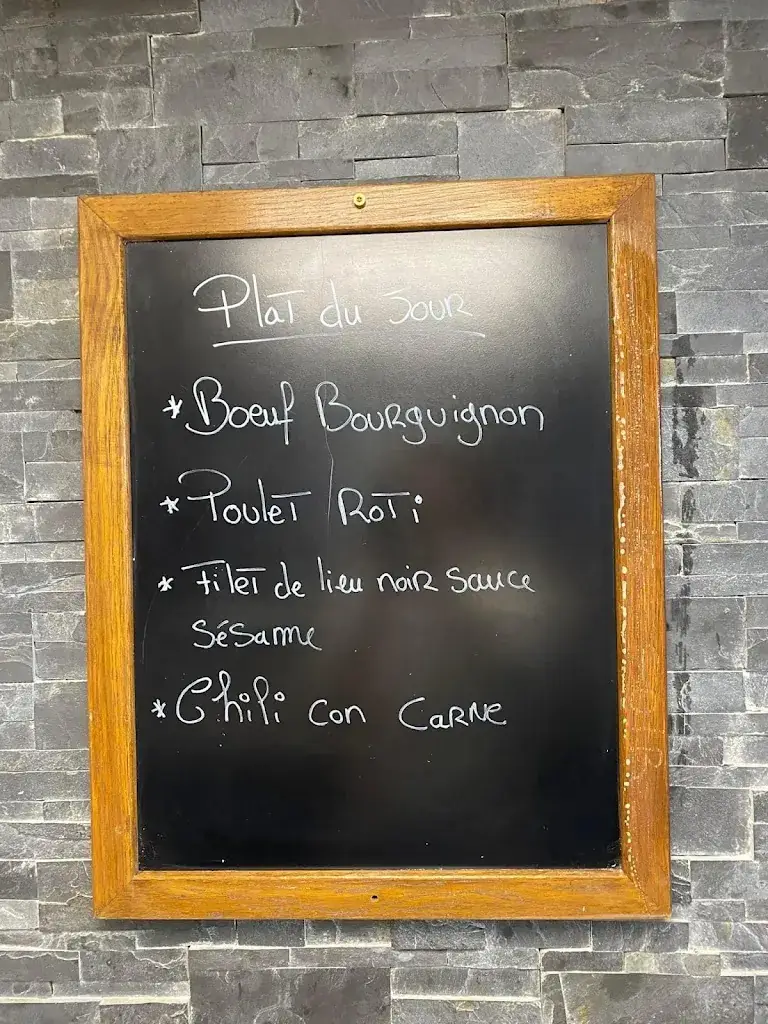 Plat du Jour
* Boeuf Bourguignon
* Poulet Roti
* Filet de lieu noir sauce
sésame
* Chili con carne